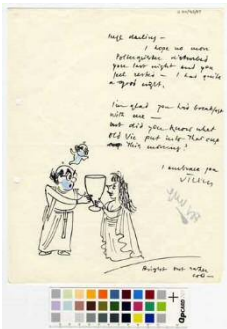 darling –
I hope no more
Poltergeister disturbed
you last night and you
feel rested – I had quite
a good night.
I'm glad you had breakfast
with me –
but did you know what
Old Vic put into that cup
this morning?
I embrace you
Bright but rather